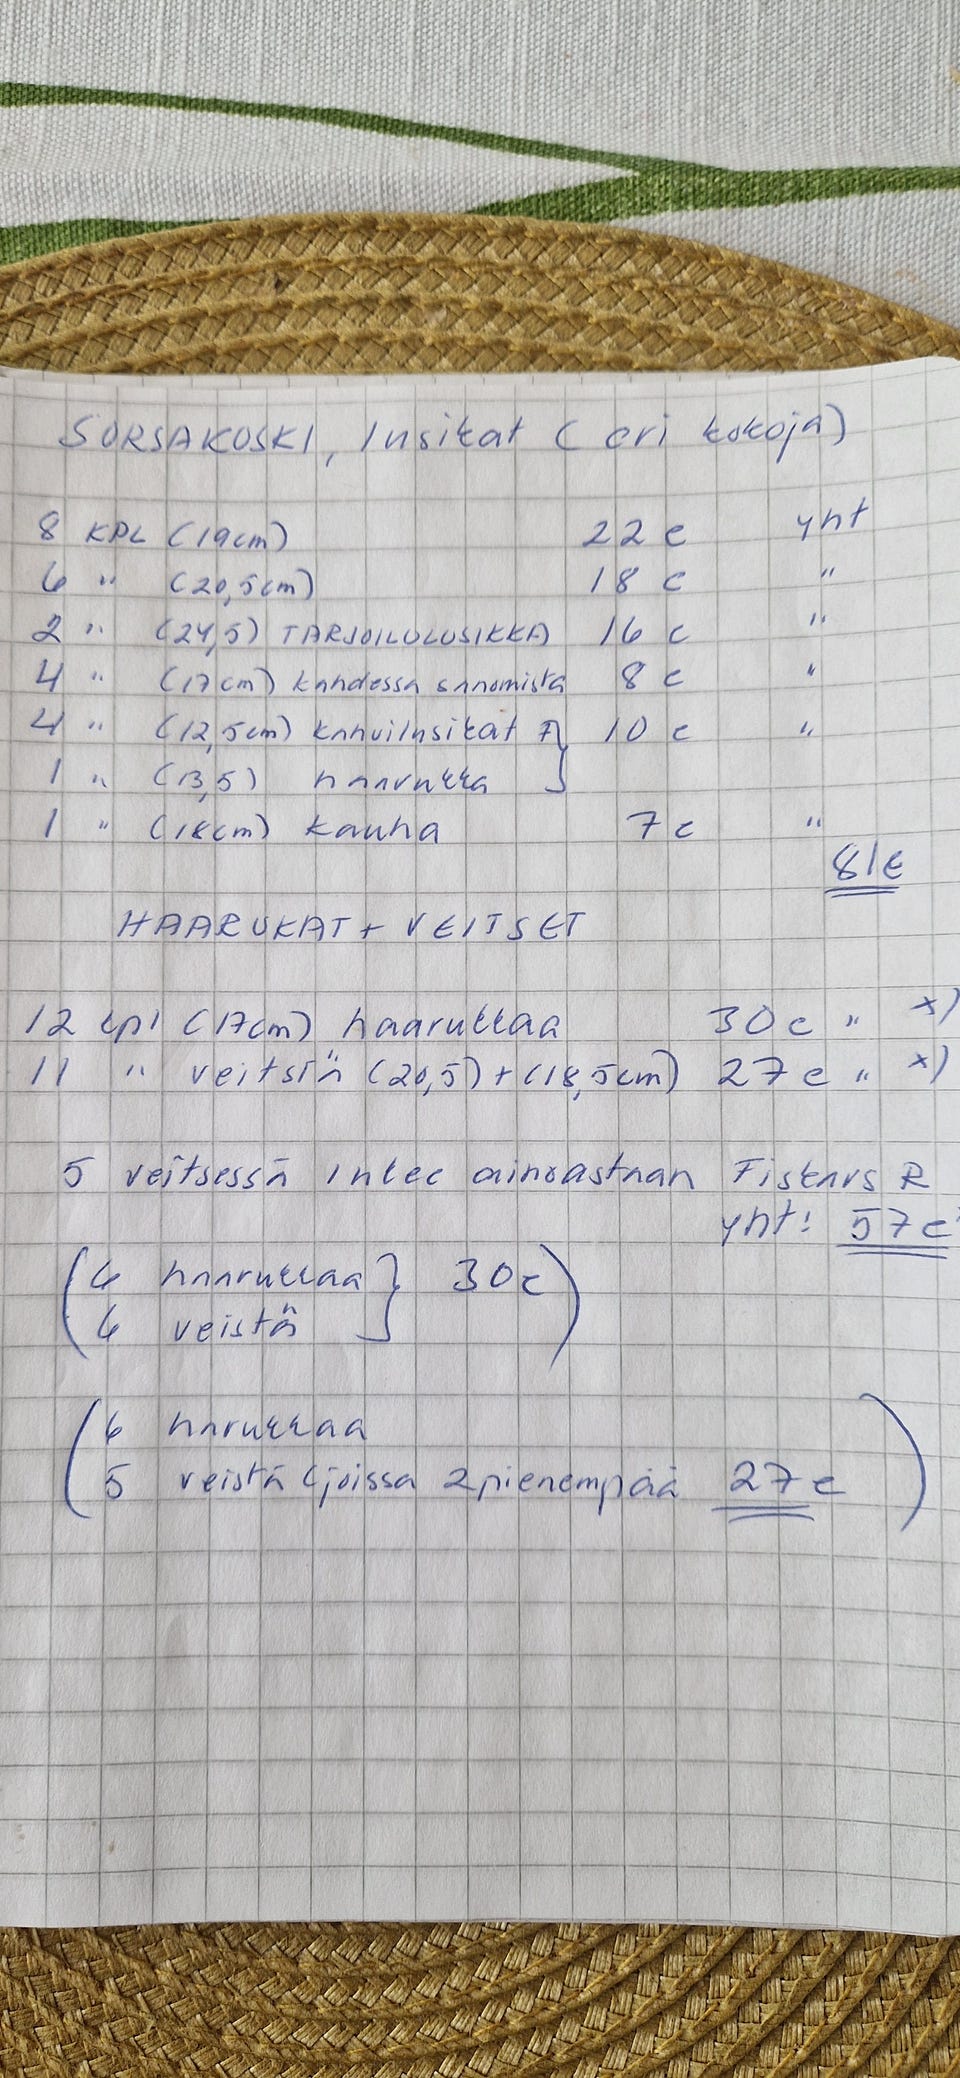 SORSAKOSKI, lusikat (eri kokoja)
8 KPL (19cm) 22 e yht
6 " (20,5cm) 18 e "
2 " (24,5) TARJOILULUSIKKA 16 e "
4 " (17cm) kahdessa sanomista 8 e "
4 " (12,5cm) kahvilusikat } 10 e "
1 " (13,5) haarukka
1 " (18cm) kauha 7 e "
81€
HAARUKAT + VEITSET
12 kpl (17cm) haarukkaa 30 e " x)
11 " veitsiä (20,5) + (18,5cm) 27 e " x)
5 veitsessä lukee ainoastaan Fiskars R
yht: 57 e
(6 haarukkaa } 30 e)
6 veistä
(6 harukkaa
5 veistä (joissa 2 pienempää 27 e)